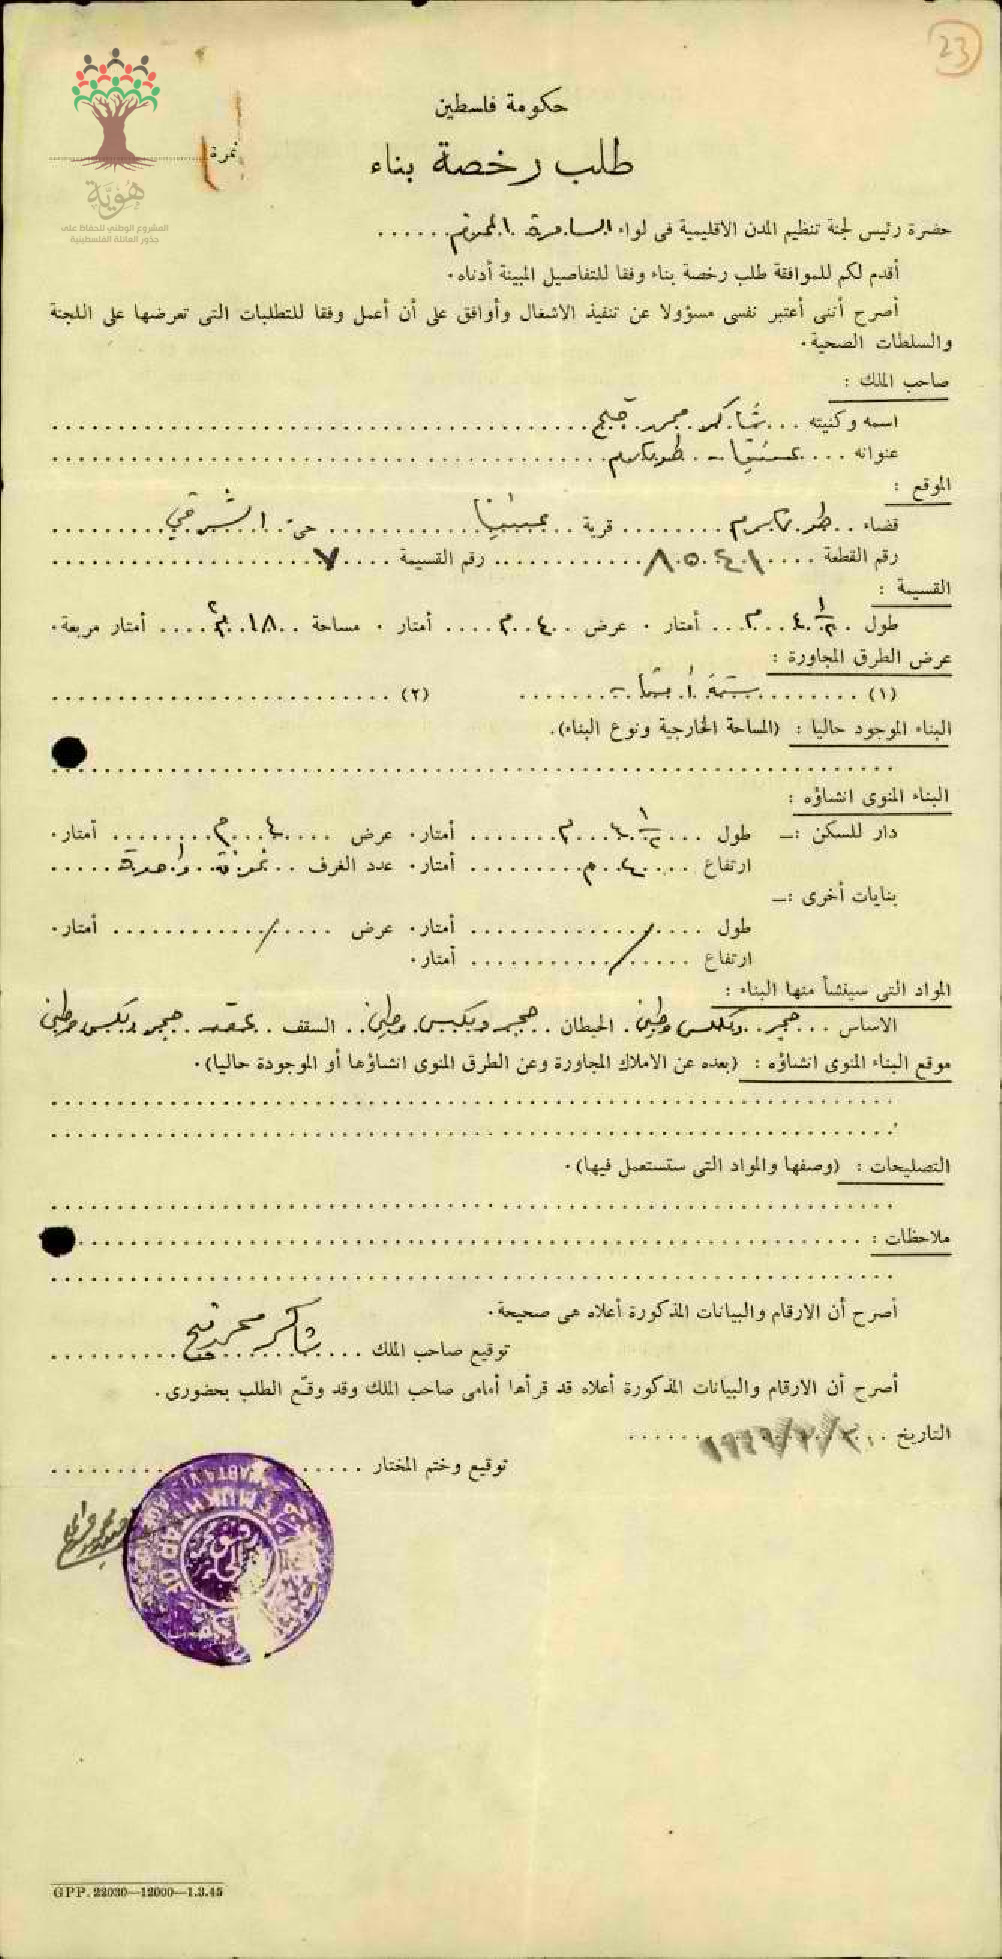 23
حكومة فلسطين
طلب رخصة بناء
نمرة
هُوِيَّة
المشروع الوطني للحفاظ على
جذور العائلة الفلسطينية
حضرة رئيس لجنة تنظيم المدن الاقليمية فى لواء السامرة
أقدم لكم للموافقة طلب رخصة بناء وفقا للتفاصيل المبينة أدناه.
أصرح أننى أعتبر نفسى مسؤولا عن تنفيذ الاشغال وأوافق على أن أعمل وفقا للمتطلبات التى تعرضها على اللجنة
والسلطات الصحية.
صاحب الملك :
اسمه وكنيته ... شاكر محمد
عنوانه .... طولكرم
الموقع :
قضاء .. طولكرم ........ قرية .......... حى .. الشرقي
رقم القطعة .... ٨٠٥٤١ ............ رقم القسيمة .... ٧
القسيمة :
طول .. ٤ ١/٢ م ... أمتار . عرض .. ٤ م .... أمتار . مساحة .. ١٨ م٢ .... أمتار مربعة.
عرض الطرق المجاورة :
(١) ........ ستة أمتار ........ (٢)
البناء الموجود حاليا : (المساحة الخارجية ونوع البناء).
البناء المنوى انشاؤه :
دار للسكن :ــ طول .... ٤ ١/٢ م ........ أمتار. عرض .... ٤ م ........ أمتار.
ارتفاع .... ٤ م ......... أمتار. عدد الغرف .. غرفة واحدة
بنايات أخرى :ــ
طول .... / ........ أمتار. عرض .... / ........ أمتار.
ارتفاع .... / ........ أمتار.
المواد التى سينشأ منها البناء :
الاساس ... حجر .. الحيطان .. حجر .. السقف .. عقد حجر
موقع البناء المنوى انشاؤه : (بعده عن الاملاك المجاورة وعن الطرق المنوى انشاؤها أو الموجودة حاليا).
التصليحات : (وصفها والمواد التى ستستعمل فيها).
ملاحظات :
أصرح أن الارقام والبيانات المذكورة أعلاه هى صحيحة.
توقيع صاحب الملك ... شاكر محمد
أصرح أن الارقام والبيانات المذكورة أعلاه قد قرأها أمامى صاحب الملك وقد وقّع الطلب بحضورى.
التاريخ
توقيع وختم المختار
GPP. 22030—12000—1.3.45